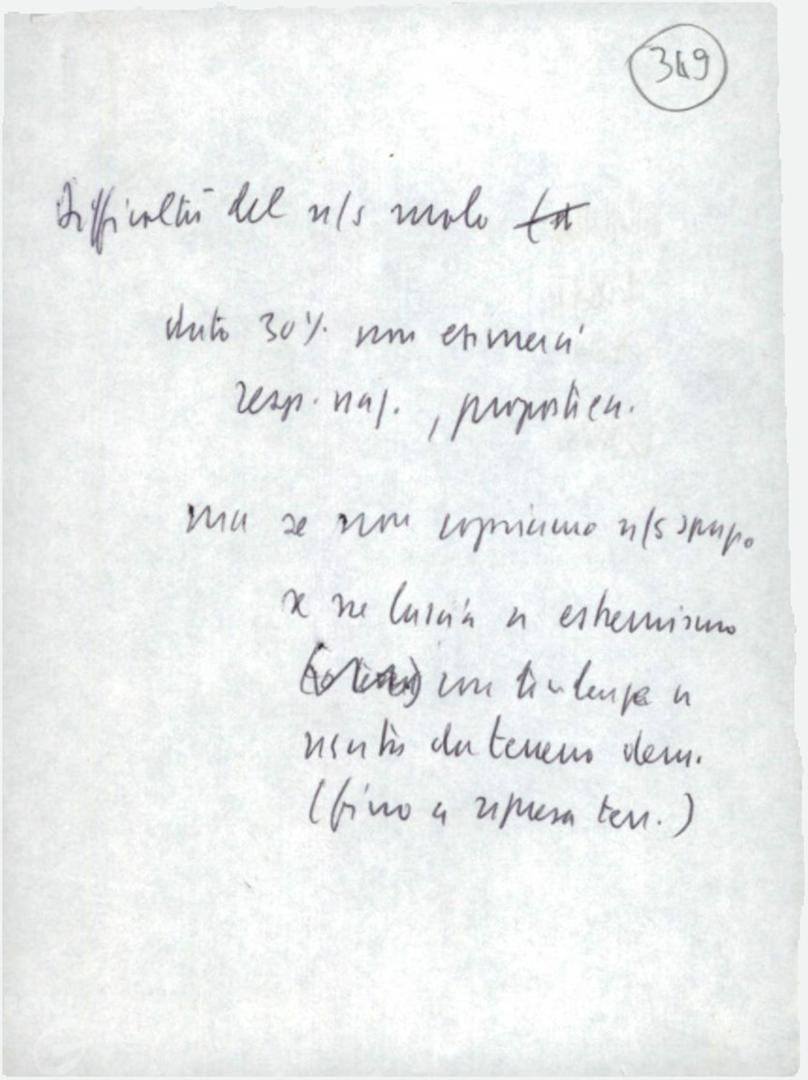 349
Difficoltà del n/s ruolo
dato 30% non esimerci
resp. naz., propositiva.
ma se non copriamo n/s spazio
x se lascia a estremismo
con tendenza a
uscita da terreno dem.
(fino a ripresa terr.)